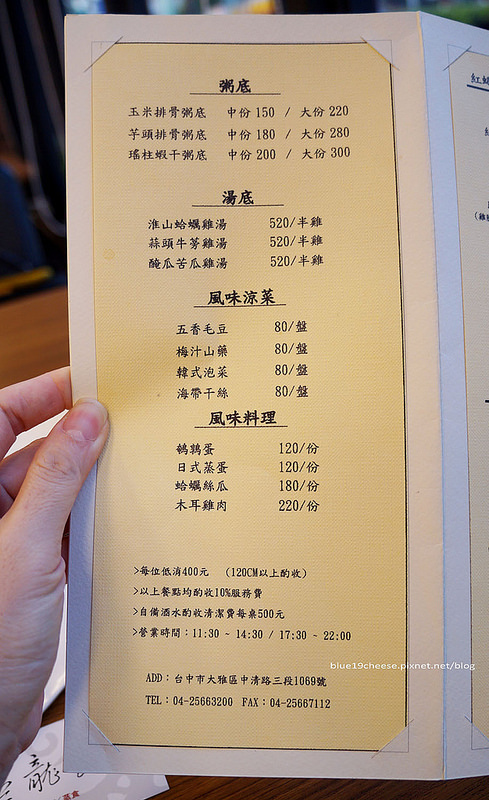 粥底
玉米排骨粥底 中份 150 / 大份 220
芋頭排骨粥底 中份 180 / 大份 280
瑤柱蝦干粥底 中份 200 / 大份 300
湯底
淮山蛤蠣雞湯 520/半雞
蒜頭牛蒡雞湯 520/半雞
醃瓜苦瓜雞湯 520/半雞
風味涼菜
五香毛豆 80/盤
梅汁山藥 80/盤
韓式泡菜 80/盤
海帶干絲 80/盤
風味料理
鵪鶉蛋 120/份
日式蒸蛋 120/份
蛤蠣絲瓜 180/份
木耳雞肉 220/份
>每位低消400元 (120CM以上酌收)
>以上餐點均酌收10%服務費
>自備酒水酌收清潔費每桌500元
>營業時間：11:30 ~ 14:30 / 17:30 ~ 22:00
ADD：台中市大雅區中清路三段1069號
TEL：04-25663200 FAX：04-25667112
blue19cheese.pixnet.net/blog
龍
蒸食
紅